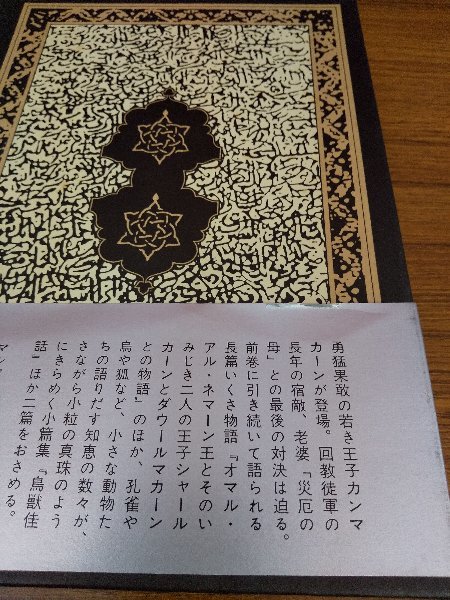 勇猛果敢の若き王子カンマ
カーンが登場。回教徒軍の
長年の宿敵、老婆「災厄の
母」との最後の対決は迫る。
前巻に引き続いて語られる
長篇いくさ物語『オマル・
アル・ネマーン王とそのい
みじき二人の王子シャール
カーンとダウールマカーン
との物語』のほか、孔雀や
烏や狐など、小さな動物た
ちの語りだす知恵の数々が、
さながら小粒の真珠のよう
にきらめく小篇集『鳥獣佳
話』ほか二篇をおさめる。